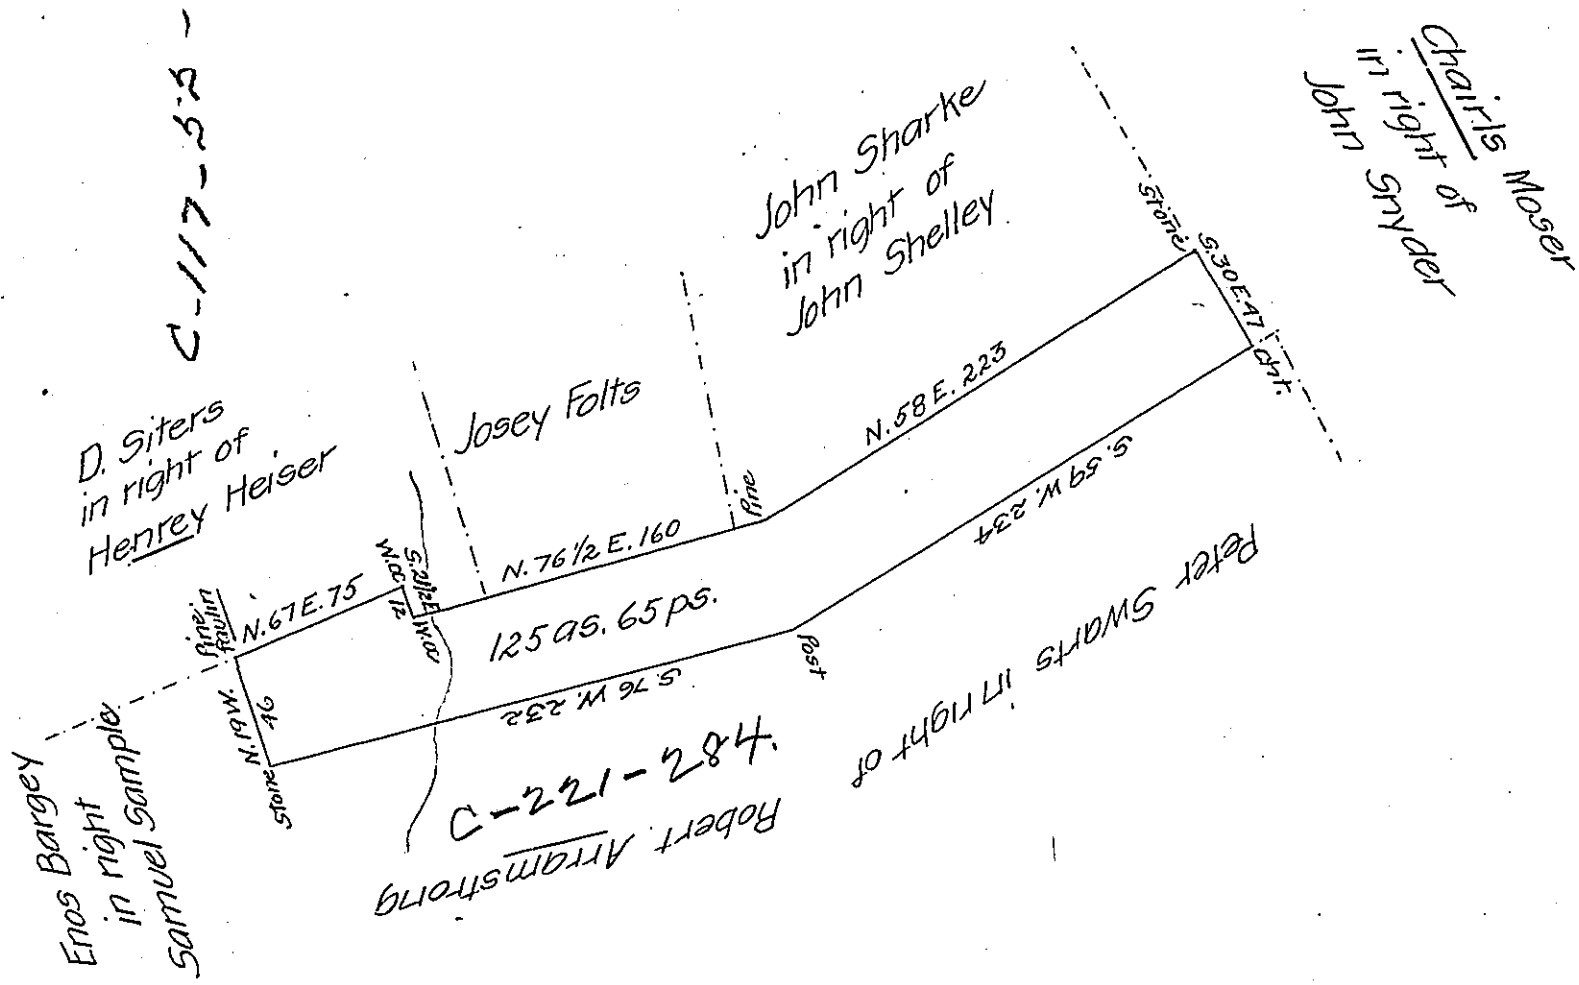 C-117-53-
Chairls Moser
in right of
John Snyder
John Sharke
in right of
John Shelley
Josey Folts
D. Siters
in right of
Henrey Heiser
Enos Bargey
in right
in of
Samuel Sample
Stone
S.30E.47
Cht.
N.58E.223
S.59W.234
Pine
N.76 1/2 E.160
W.OC
S.21 1/2 E
12
W.OC
N.67E.75
Pine
N.19W.
46
Stone
125 as. 65 ps.
S.76 W. 232
Post
Peter Swarts in right of
Robert Arramstrong
C-221-284